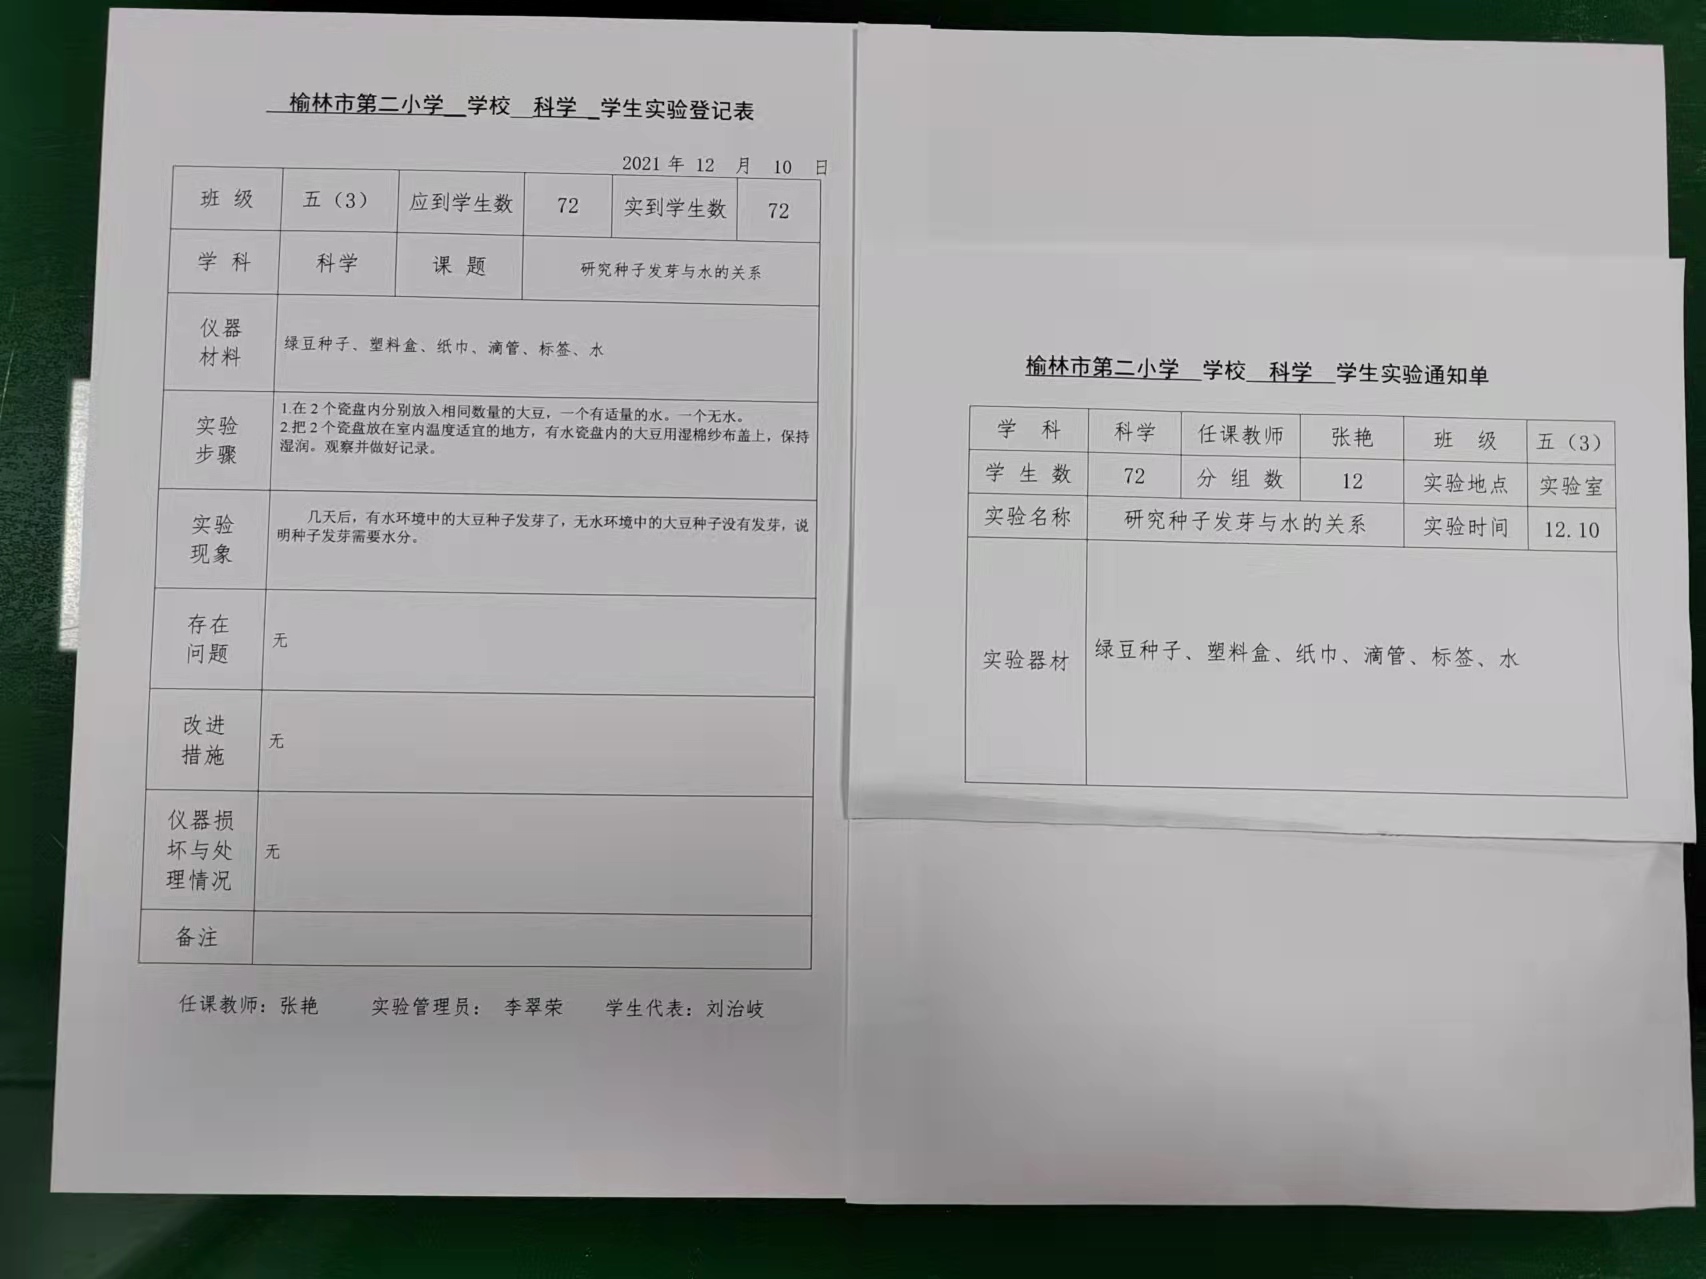 榆林市第二小学 学校 科学 学生实验登记表
2021 年 12 月 10 日
班 级 五（3） 应到学生数 72 实到学生数 72
学 科 科学 课 题 研究种子发芽与水的关系
仪器
材料
绿豆种子、塑料盒、纸巾、滴管、标签、水
实验
步骤
1.在 2 个瓷盘内分别放入相同数量的大豆，一个有适量的水。一个无水。
2.把 2 个瓷盘放在室内温度适宜的地方，有水瓷盘内的大豆用湿棉纱布盖上，保持
湿润。观察并做好记录。
实验
现象
几天后，有水环境中的大豆种子发芽了，无水环境中的大豆种子没有发芽，说
明种子发芽需要水分。
存在
问题
无
改进
措施
无
仪器损
坏与处
理情况
无
备注
任课教师：张艳 实验管理员： 李翠荣 学生代表：刘治岐
榆林市第二小学 学校 科学 学生实验通知单
学 科 科学 任课教师 张艳 班 级 五（3）
学 生 数 72 分 组 数 12 实验地点 实验室
实验名称 研究种子发芽与水的关系 实验时间 12.10
实验器材 绿豆种子、塑料盒、纸巾、滴管、标签、水